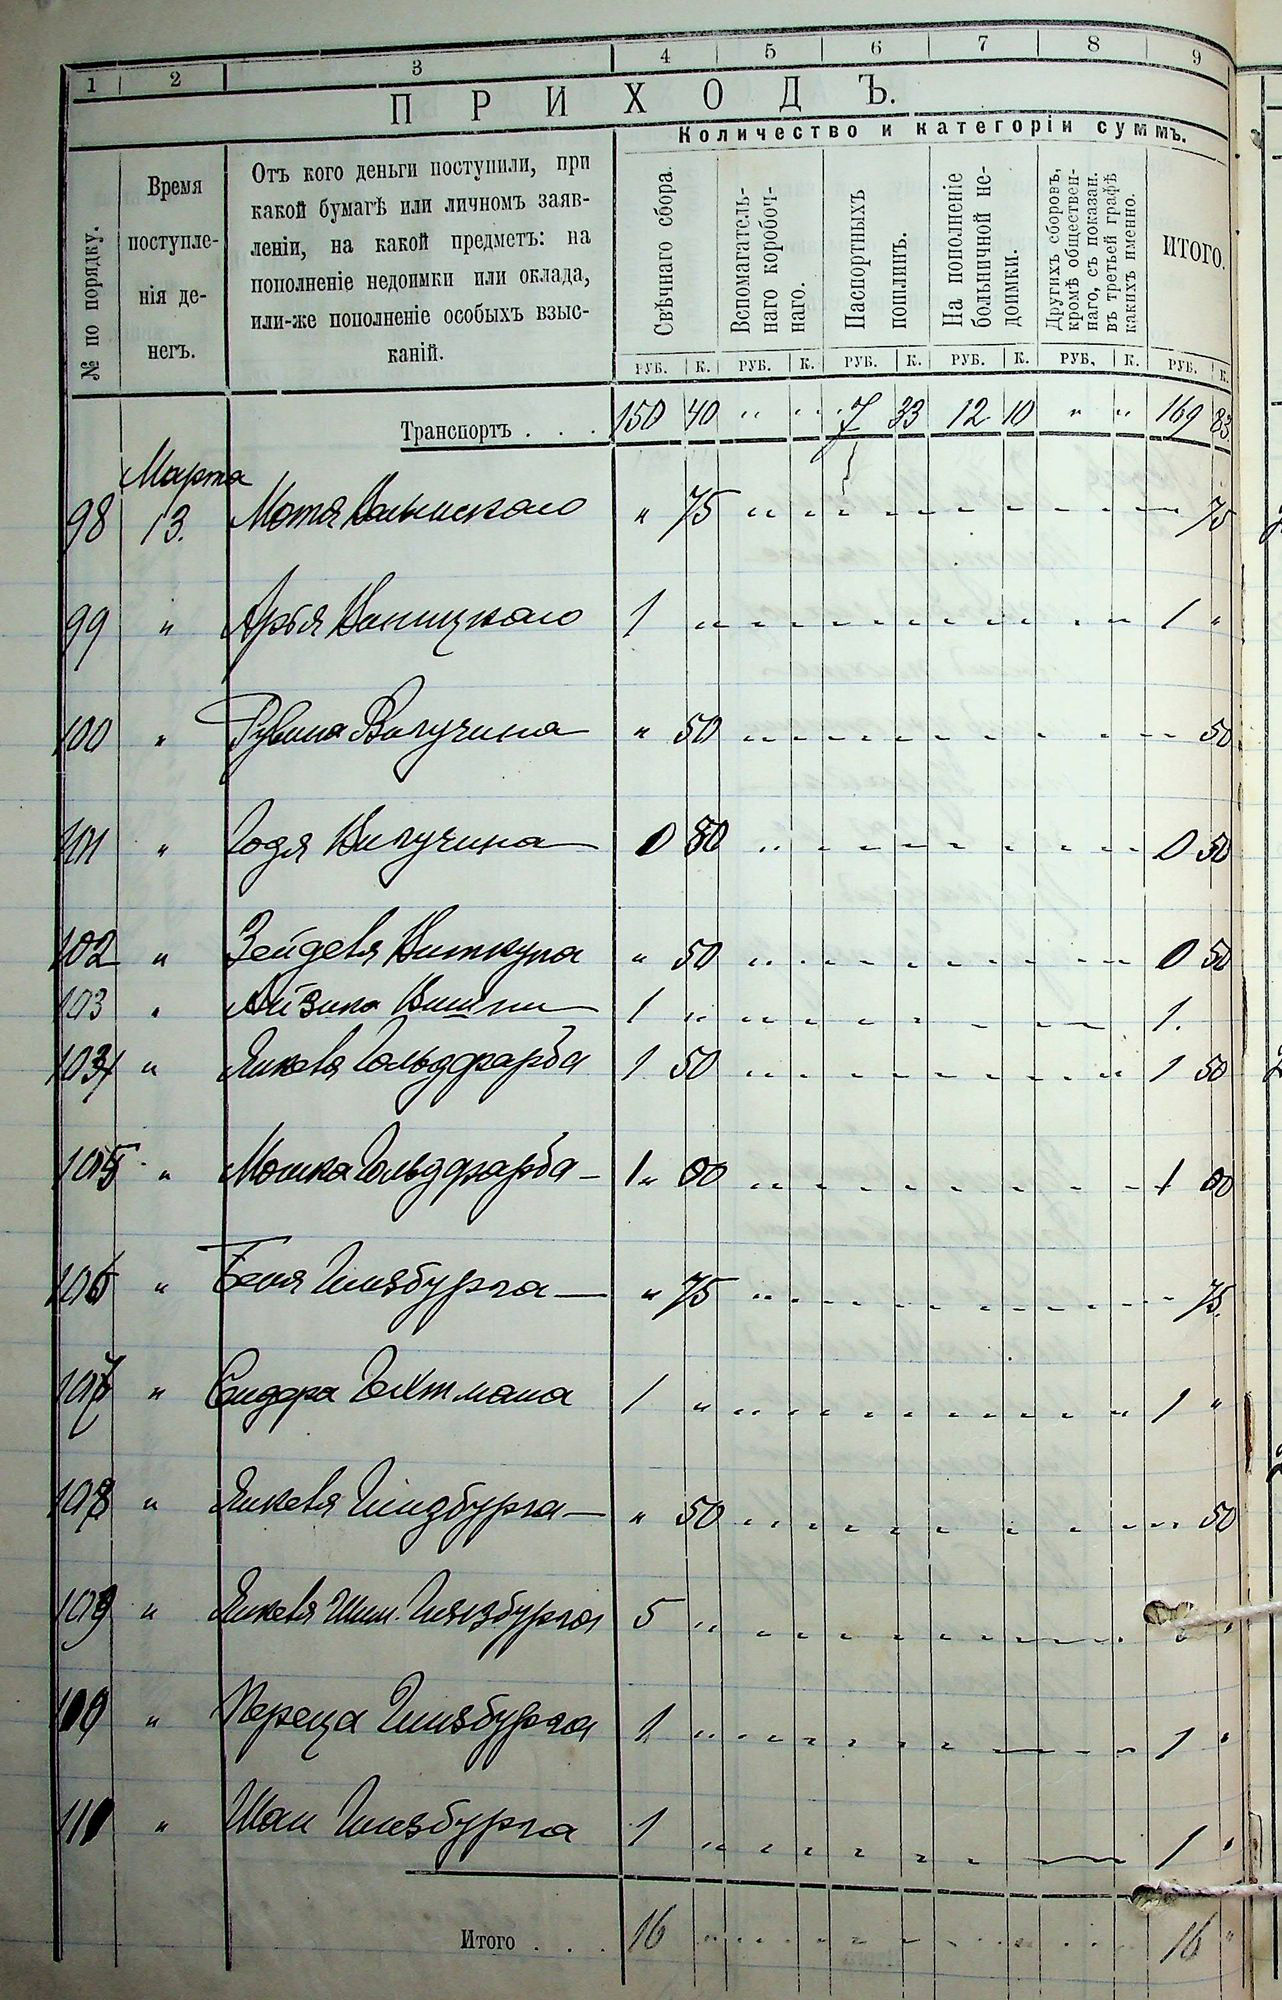 1 2 3 4 5 6 7 8 9
ПРИХОДЪ.
Количество и категоріи суммъ.
№ по порядку.
Время
поступле-
нія де-
негъ.
Отъ кого деньги поступили, при
какой бумагѣ или личномъ заяв-
леніи, на какой предметъ: на
пополненіе недоимки или оклада,
или-же пополненіе особыхъ взыс-
каній.
Свѣчнаго сбора.
Вспомагатель-
наго коробоч-
наго.
Паспортныхъ
пошлинъ.
На пополненіе
больничной не-
доимки.
Другихъ сборовъ,
кромѣ обществен-
наго, съ показан.
въ третьей графѣ
какихъ именно.
ИТОГО.
РУБ. К. РУБ. К. РУБ. К. РУБ. К. РУБ. К. РУБ. К.
Транспортъ . . . 150 40 " " 7 33 12 10 " " 169 83
Марта
98 13. Мотя " 75 75
99 " Арья 1 " 1 "
100 " Рувина " 50 50
101 " Годя 0 50 0 50
102 " Зейделя Виткупа " 50 0 50
103 " Айзика 1 " 1.
104 " Янкеля Гольдфарба 1 50 1 50
105 " Мошка Гольдфарба 1 " 00 1 00
106 " Беня Гинзбурга " 75 75.
107 " Сендера Гехтмана 1 " 1 "
108 " Янкеля Гинзбурга " 50 50
109 " Янкеля Шим. Гинзбурга 5 "
" Переца Гинзбурга 1 " 1 "
110 " Шаи Гинзбурга 1 " 1 "
Итого . . . 16 " 16 "